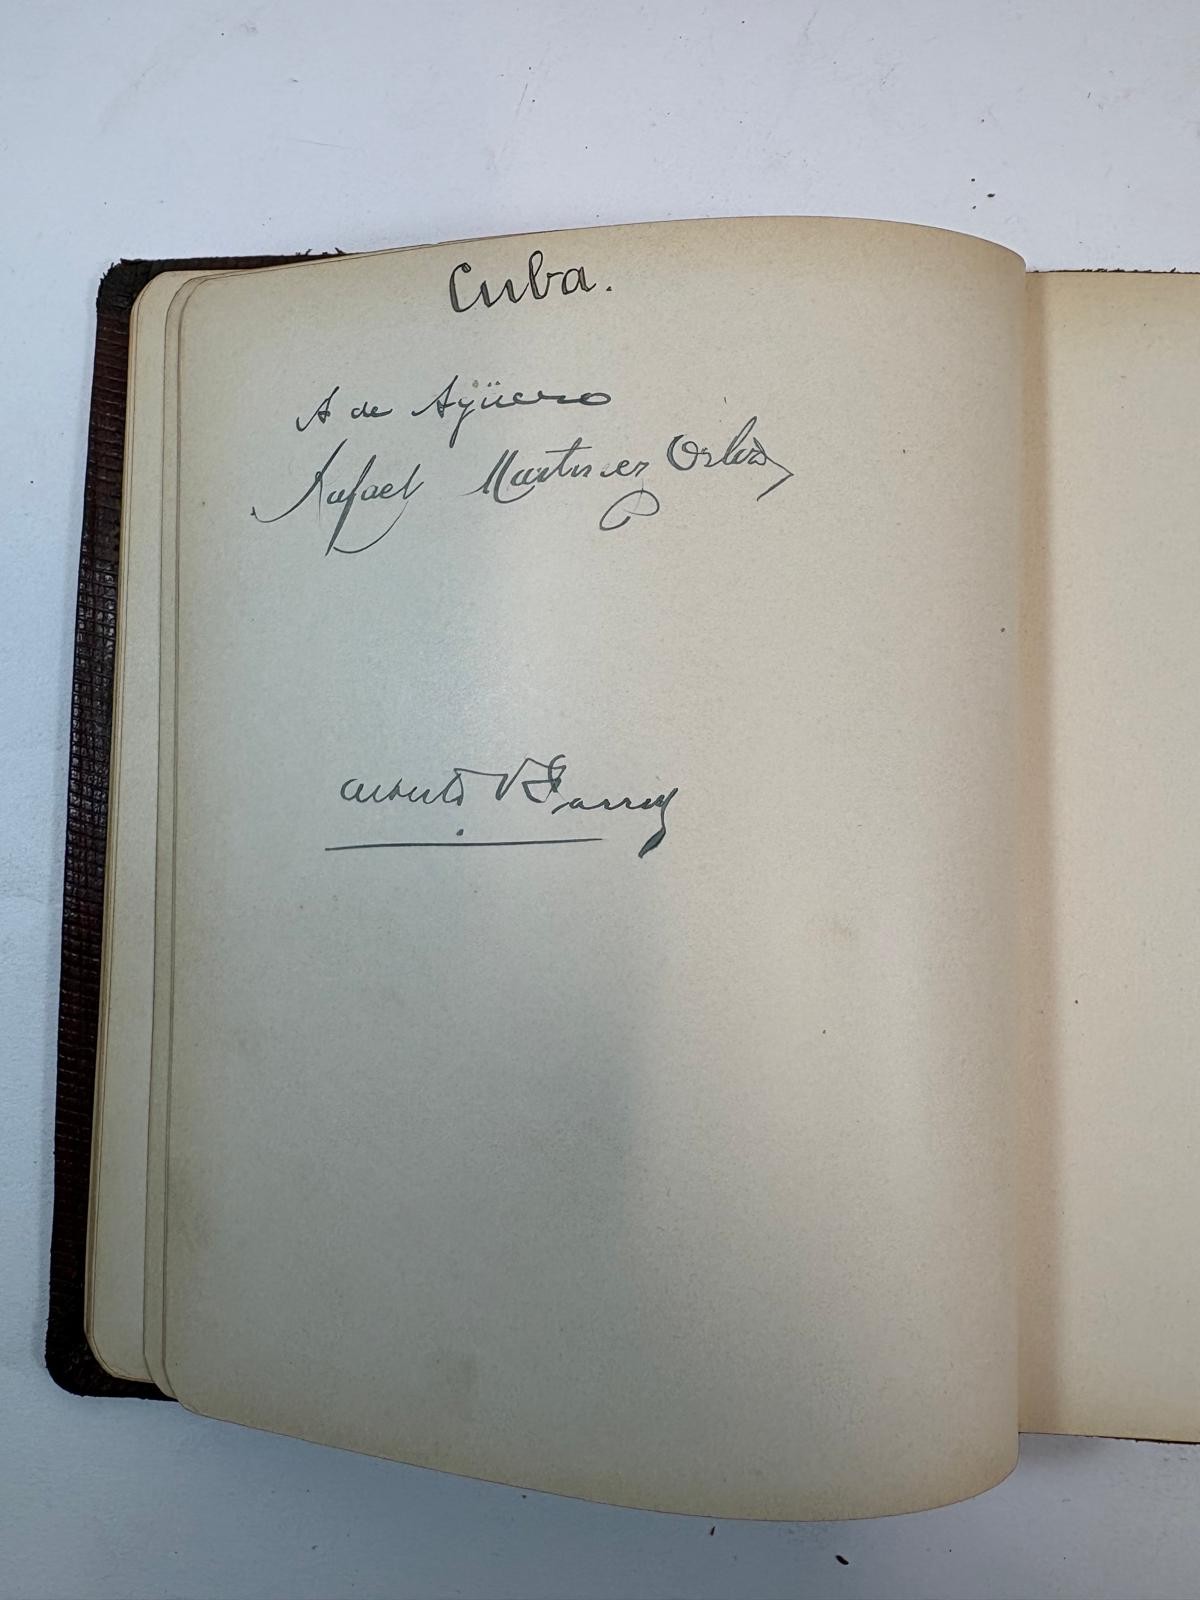 Cuba.
A de Agüero
Rafael Martinez Ortiz
Alberto